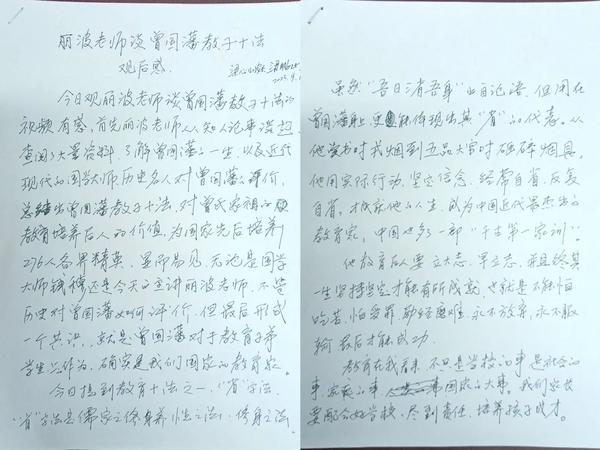 丽波老师谈曾国藩教子十法
观后感.
今日观丽波老师谈曾国藩教子十法的
视频有感,首先丽波老师从认知人记事谈起
查阅了大量资料,了解曾国藩的一生,以及近代
现代的国学大师,历史名人对曾国藩的评价,
总结出曾国藩教子十法,对曾氏家祖的
教育培养后人的价值,为国家先后培养
276人各界精英,显而易见,无论是国学
大师钱穆还是今天主讲丽波老师,不管
历史对曾国藩如何评价,但最后形成
一个共识,就是曾国藩对于教育子弟
学生之作为,确实是我们国家的教育家.
今日提到教育十法之一,"省"字法.
"省"字法是儒家之修身养性之法,修身之法,
虽然"吾日三省吾身"的日记语,但用在
曾国藩身上更能体现出其"省"的代表.从
他读书时戒烟到五品大官时砸碎烟具,
他用实际行动,坚定信念,经常自省,反复
自省,才成就他的人生,成为中国近代最杰出的
教育家,中国也多了一部"千古第一家训".
他教育后人要立大志,早立志,并且终其
一生坚持坚定才能有所成就,也就是不能怕
吃苦,怕受罪,勤经磨难,永不放弃,永不服
输最后才能成功.
教育在我看来,不只是学校的事是社会的
事家庭的事国家的大事.我们家长
要配合好学校,尽到责任,培养孩子成才.